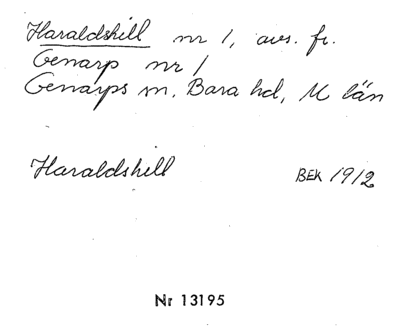 Haraldshill nr 1, avs. fr.
Genarp nr 1
Genarps sn, Bara hd, M län
Haraldshill BEK 1912
Nr 13195